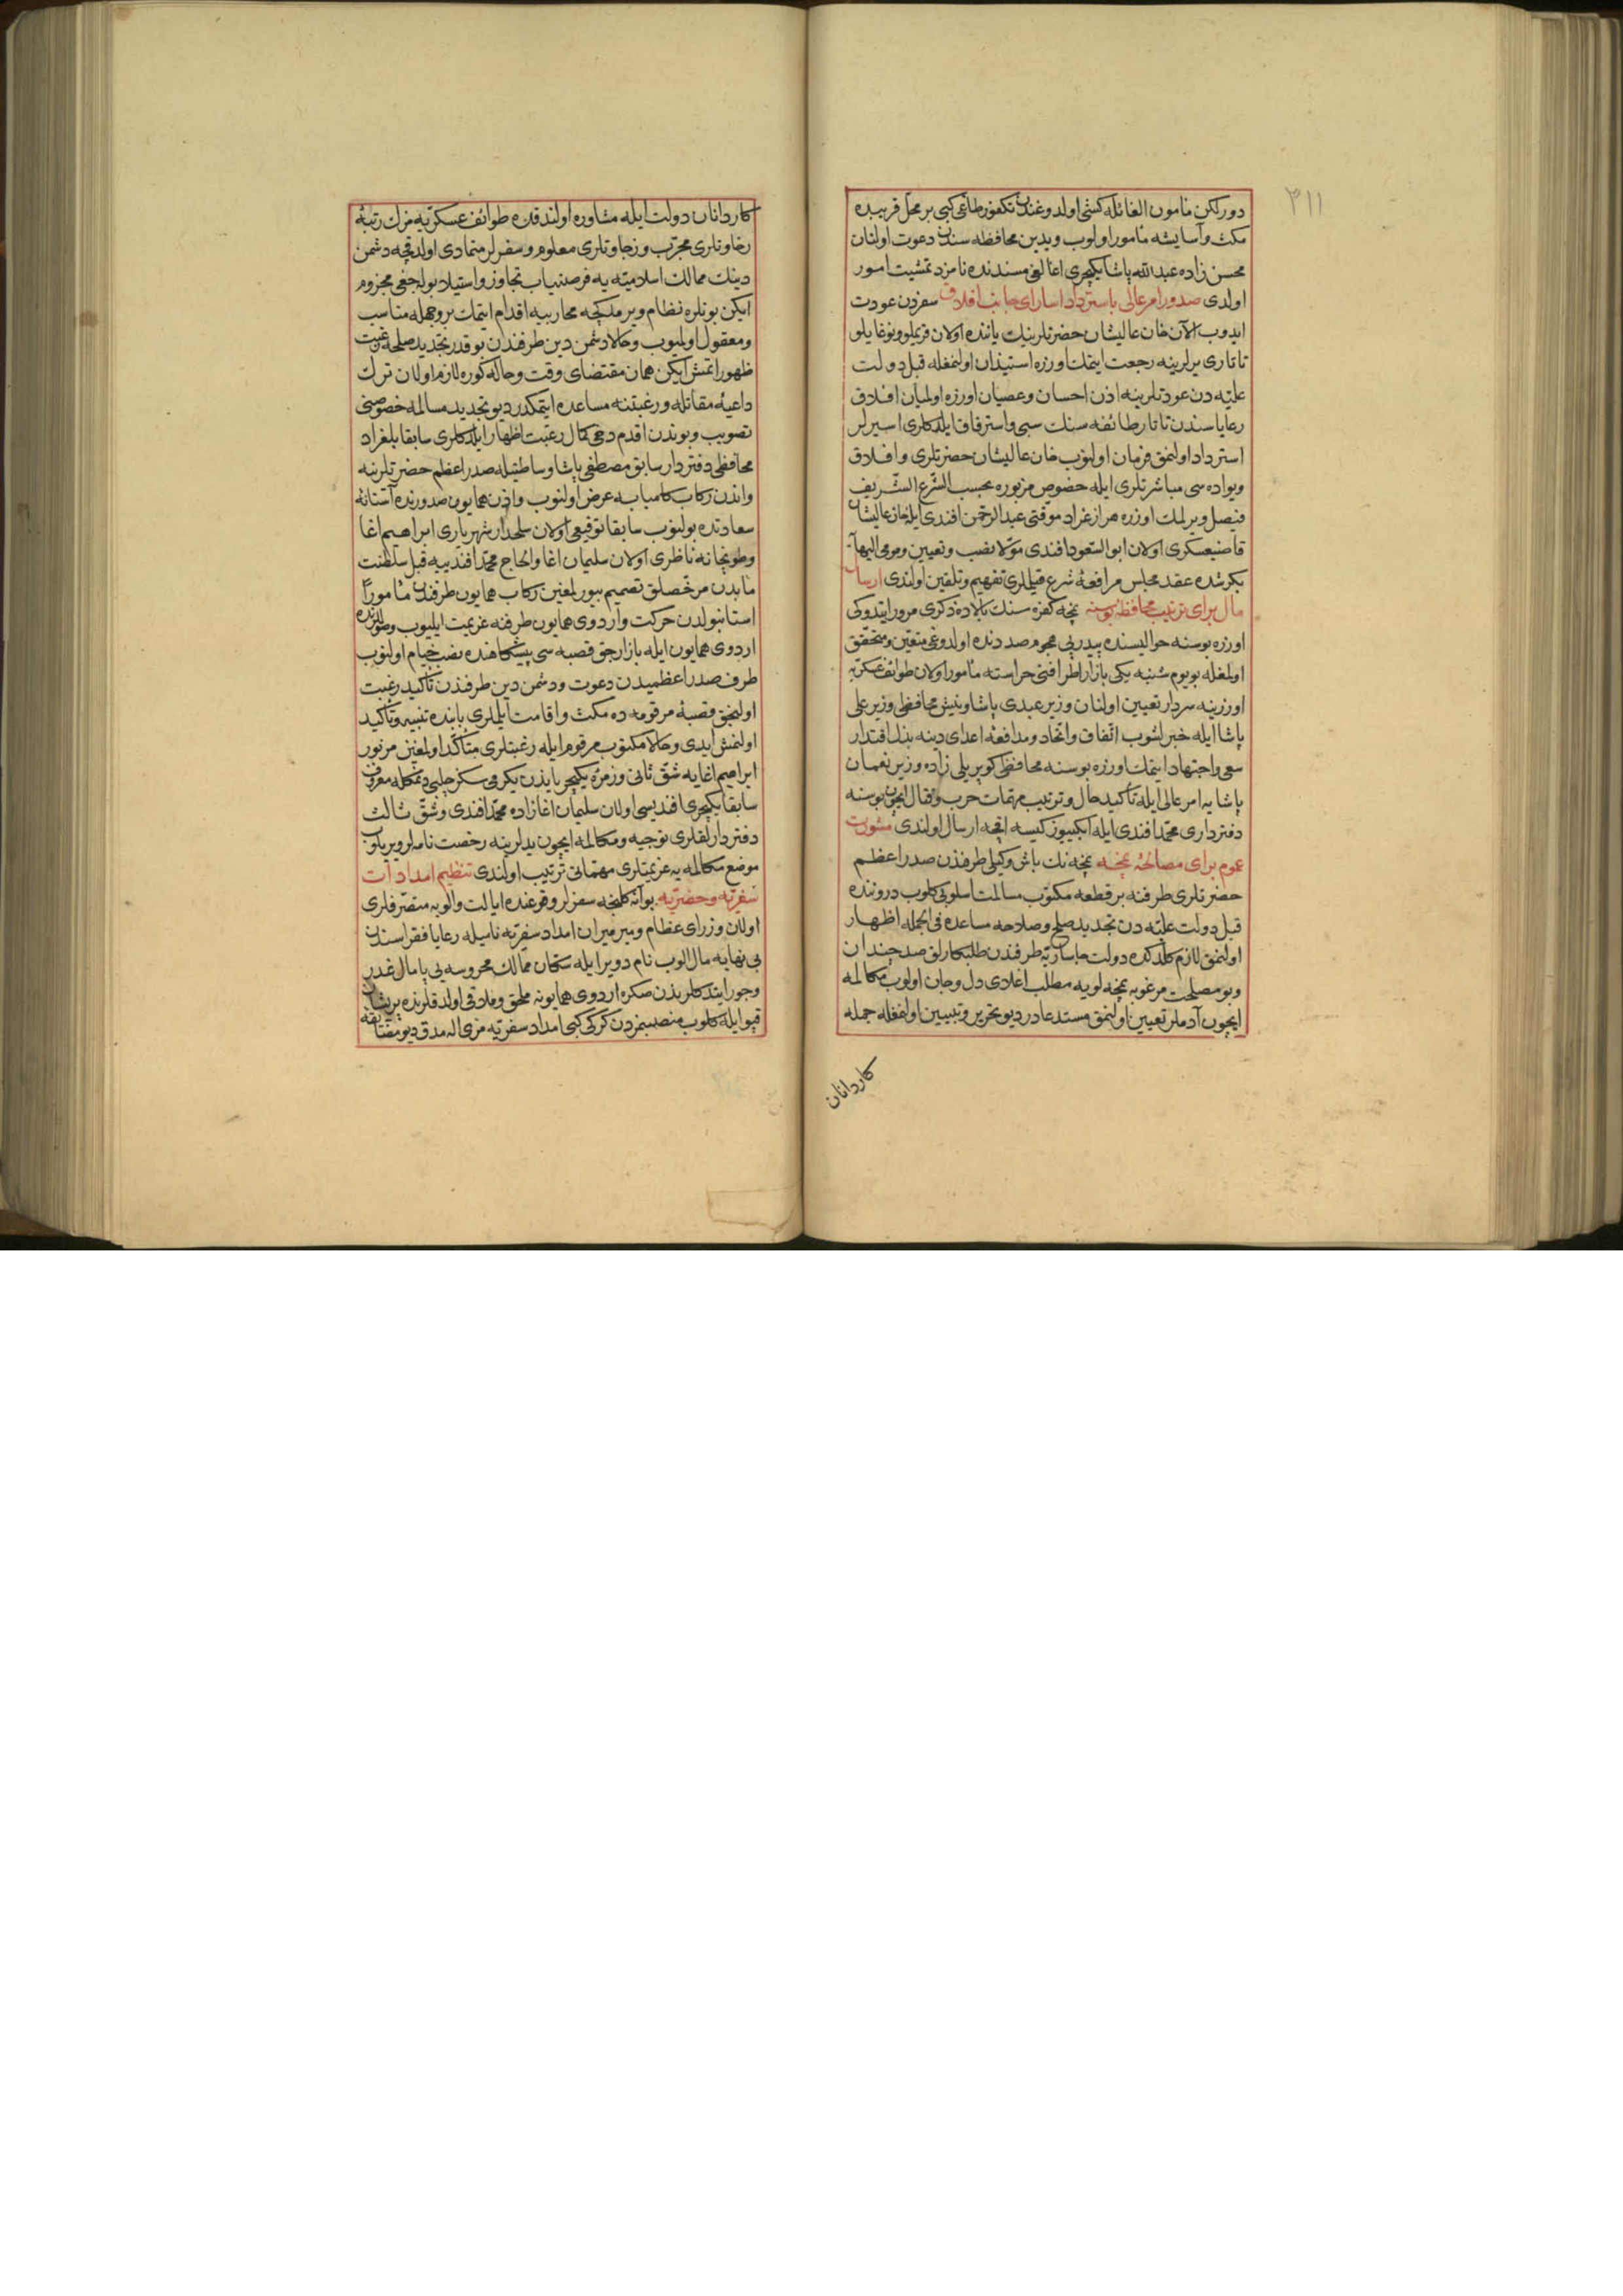 ٣١١
دور لكن مأمون الغائله كشی اولدوغندن تكفور طاغی كبی بر محل قریبده
مكث وآسایشه مأمور اولوب ویدین محافظه سندن دعوت اولنان
محسن زاده عبدالله پاشا یكیچری اغالغی مسندنده نامزد تمشیت امور
اولدی صدور امر عالی باسترداد اسارای جانب افلاق سفردن عودت
ایدوب الآن خان عالیشان حضرتلرینك یاننده اولان قریملو ونوغایلو
تاتاری یرلرینه رجعت ایتمك اوزره استیذان اولنمغله قبل دولت
علیه دن عودتلرینه اذن احسان وعصیان اوزره اولمیان افلاق
رعایاسندن تاتار طائفه سنك سبی واسترقاق ایلدكلری اسیرلر
استرداد اولنمق فرمان اولنوب خان عالیشان حضرتلری وافلاق
ویواده سی مباشرتلری ایله خصوص مزبوره بحسب الشرع الشریف
فیصل ویرلمك اوزره هزارغراد موقتی عبدالرحمن افندی ایله خان عالیشان
قاضیعسكری اولان ابوالسعود افندی مولا نصب وتعیین ومومی الیها
بكرشده عقد مجلس مرافعهٔ شرع قیلملری تفهیم وتلقین اولندی ارسال
مال برای ترتیب محافظهٔ بوسنه نمچه كفره سنك بالاده ذكری مرور ایتدوكی
اوزره بوسنه حوالیسنده پیدرپی هجوم صددنده اولدوغی متعین ومتحقق
اولمغله بویوم شنبه یكی بازار اطرافنی حراسته مأمور اولان طوائف عسكریه
اوزرینه سردار تعیین اولنان وزیر عبدی پاشا ونیش محافظی وزیر علی
پاشا ایله خبرلشوب اتفاق واتحاد ومدافعهٔ اعدای دینه بذل اقتدار
سعی واجتهاد ایتمك اوزره بوسنه محافظی كوپریلی زاده وزیر نعمان
پاشایه امر عالی ایله تأكید حال وترتیب مهمات حرب وقتال ایچون بوسنه
دفترداری محمد افندی ایله ایكییوز كیسه اقچه ارسال اولندی مشورت
عموم برای مصالحهٔ نمچه نمچه نك باش وكیلی طرفندن صدر اعظم
حضرتلری طرفنه بر قطعه مكتوب مسالمت اسلوبی كلوب دروننده
قبل دولت علیه دن تجدید صلح وصلاحه مساعده فی الجمله اظهار
اولنمق لازم كلدكده دولت چاساریه طرفندن طلبكارلق صد چندان
وبو مصلحت مرغوبه نمچه لویه مطلب اعلادی دل وجان اولوب مكالمه
ایچون آدملر تعیین اولنمق مستدعادر دیو تحریر وتبیین اولنمغله جمله
كاردانان
كاردانان دولت ایله مشاوره اولندقده طوائف عسكریه نرك رتبهٔ
رخاوتلری مجرب وزجاوتلری معلوم وسفرلر متمادی اولدقجه دشمن
دینك ممالك اسلامیته یه فرصتیاب تجاوز واستیلا بولجغی مجزوم
ایكن بونلره نظام ویرملكجه محاربه یه اقدام ایتمك بر وجهله مناسب
ومعقول اولمیوب وحالا دشمن دین طرفندن بو قدر تجدید صلحه رغبت
ظهور ایتمش ایكن همان مقتضای وقت وحاله كوره لازم اولان ترك
داعیهٔ مقاتله ورغبتنه مساعده ایتمكدر دیو تجدید مسالمه خصوصنی
تصویب وبوندن اقدم دخی كمال رغبت اظهار ایلدكلری سابقا بلغراد
محافظی دفتردار سابق مصطفی پاشا وساطتیله صدر اعظم حضرتلرینه
واندن ركاب كامیابه عرض اولنوب واذن همایون صدورنده آستانهٔ
سعادتده بولنوب سابقا توقیعی اولان سلحدار شهریاری ابراهیم اغا
وطوپخانه ناظری اولان سلیمان اغا والحاج محمد افندییه قبل سلطنت
مآبدن مرخصلق تصمیم بیورلمغین ركاب همایون طرفندن مأمورا
استانبولدن حركت واردوی همایون طرفنه عزیمت ایلیوب وصوللرنده
اردوی همایون ایله بازارجق قصبه سی پیشكاهنده نصب خیام اولنوب
طرف صدر اعظمیدن دعوت ودشمن دین طرفندن تأكید رغبت
اولنجق قصبهٔ مرقومه ده مكث واقامت ایلملری بابنده تنبیه وتأكید
اولنمش ایدی وحالا مكتوب مرقوم ایله رغبتلری متأكد اولمغین مزبور
ابراهیم اغایه شق ثانی وزمرهٔ یكیچریایدن یكرمی سكز چلبی دیمكله معروف
سابقا یكیچری افندیسی اولان سلیمان اغازاده محمد افندی وشق ثالث
دفتردارلقلری توجیه ومكالمه ایچون یدلرینه رخصت نامه لر ویریلوب
موضع مكالمه یه عزیمتلری مهماتی ترتیب اولندی تنظیم امدادات
سفریه وحضریه بو آنه كلنجه سفرلر وقوعنده ایالت والویه متصرفلری
اولان وزرای عظام ومیرمیران امداد سفریه نامیله رعایا فقراسندن
بی نهایه مال الوب نام دویر ایله سكان ممالك محروسه یی پامال غدر
وجور ایتدكلریندن صكره اردوی همایونه ملحق وملاقی اولدقلرنده پریشان
قپو ایله كلوب منصبمزدن كركی كبی امداد سفریه مزی اله مدق دیو مضایقه